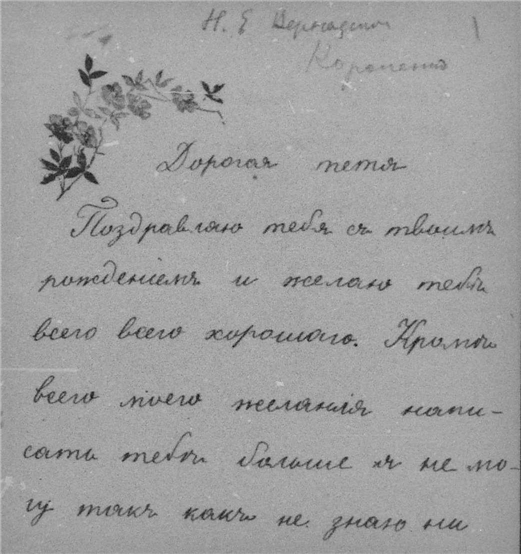 Н. Е. Вернадской
Короленко
1
Дорогая тетя
Поздравляю тебя съ твоимъ
рожденіемъ и желаю тебѣ
всего всего хорошаго. Кромѣ
всего моего желанія напи-
сать тебѣ больше я не мо-
гу такъ какъ не знаю ни